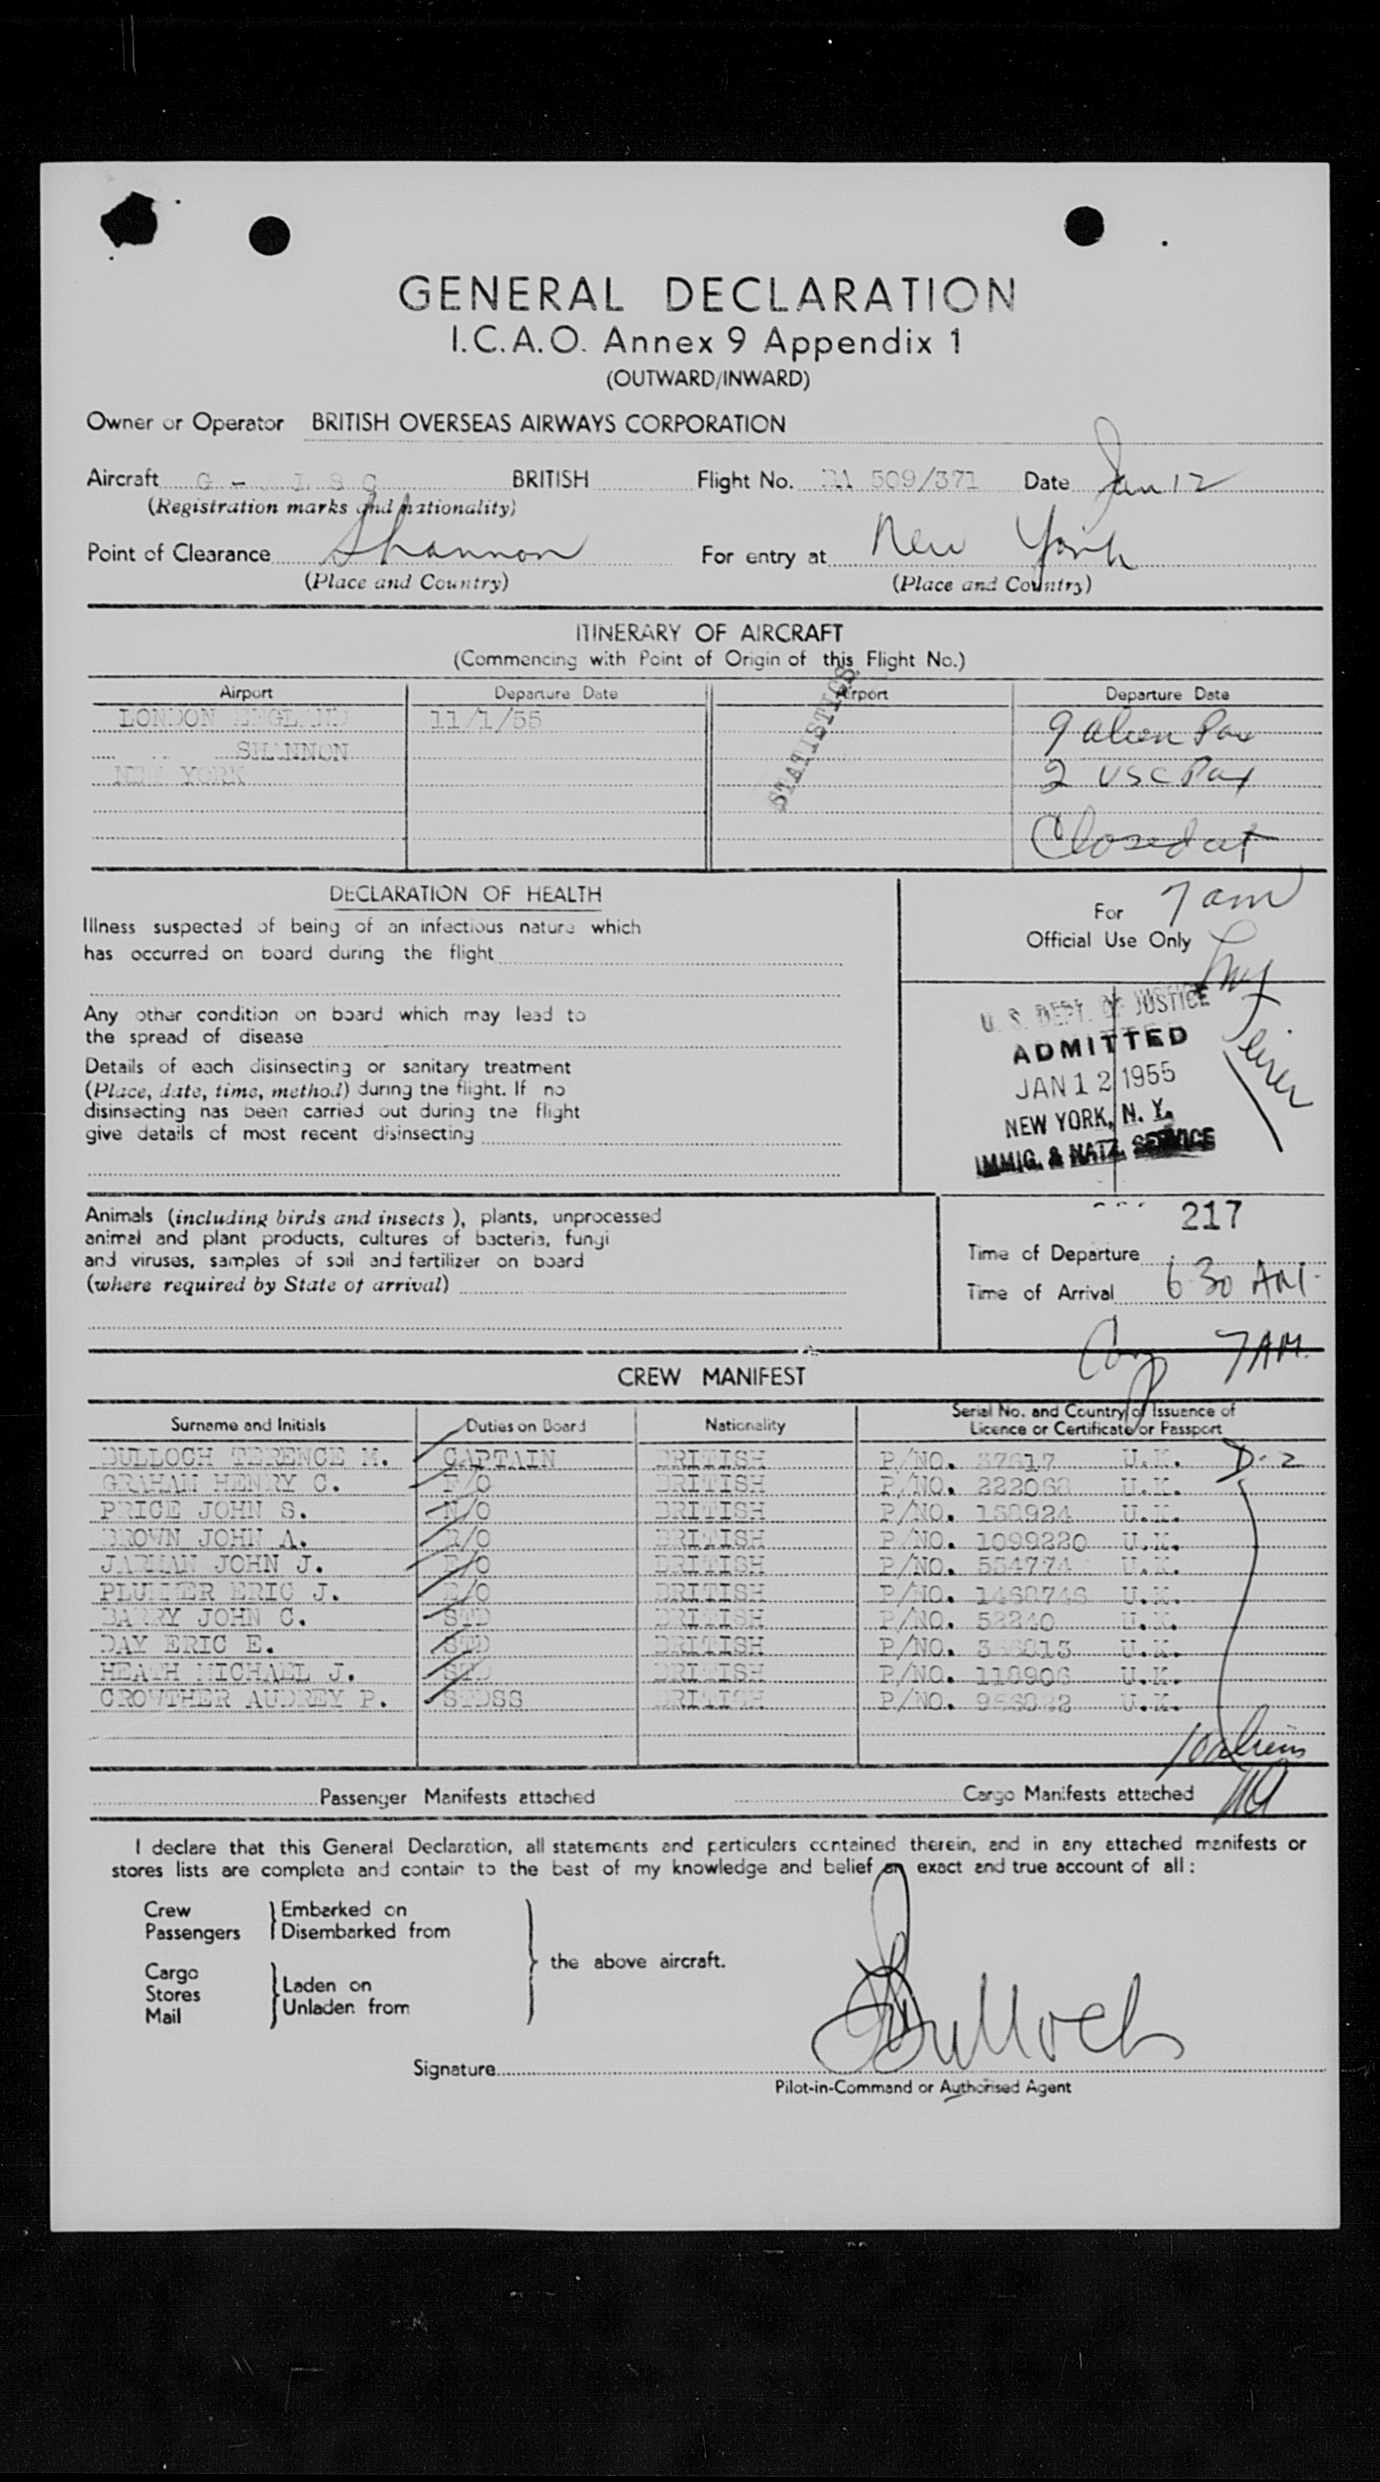 GENERAL DECLARATION
I.C.A.O. Annex 9 Appendix 1
(OUTWARD/INWARD)
Owner or Operator BRITISH OVERSEAS AIRWAYS CORPORATION
Aircraft G - BRITISH Flight No. BA 509/371 Date Jan 12
(Registration marks and nationality)
Point of Clearance Shannon For entry at New York
(Place and Country) (Place and Country)
ITINERARY OF AIRCRAFT
(Commencing with Point of Origin of this Flight No.)
Airport Departure Date Airport Departure Date
STATISTICS
LONDON ENGLAND 11/1/55 9 alien Pax
SHANNON
NEW YORK 2 USC Pax
Closed at
7 am
DECLARATION OF HEALTH
For
Official Use Only
Illness suspected of being of an infectious nature which
has occurred on board during the flight
Any other condition on board which may lead to
the spread of disease
Details of each disinsecting or sanitary treatment
(Place, date, time, method) during the flight. If no
disinsecting has been carried out during the flight
give details of most recent disinsecting
U. S. DEPT. OF JUSTICE
ADMITTED
JAN 12 1955
NEW YORK, N. Y.
IMMIG. & NATZ. SERVICE
Animals (including birds and insects), plants, unprocessed
animal and plant products, cultures of bacteria, fungi
and viruses, samples of soil and fertilizer on board
(where required by State of arrival)
217
Time of Departure
Time of Arrival 6 30 AM
7 AM.
CREW MANIFEST
Surname and Initials Duties on Board Nationality Serial No. and Country of Issuance of
Licence or Certificate or Passport
BULLOCH TERENCE M. CAPTAIN BRITISH P/NO. 37617 U.K. D-2
GRAHAM HENRY C. F/O BRITISH P/NO. 222068 U.K.
PRICE JOHN S. N/O BRITISH P/NO. 158924 U.K.
BROWN JOHN A. R/O BRITISH P/NO. 1099220 U.K.
JARMAN JOHN J. E/O BRITISH P/NO. 554774 U.K.
PLUMMER ERIC J. E/O BRITISH P/NO. 1468746 U.K.
BARRY JOHN C. STD BRITISH P/NO. U.K.
DAY ERIC E. STD BRITISH P/NO. U.K.
HEATH MICHAEL J. STD BRITISH P/NO. 118906 U.K.
CROWTHER AUDREY P. STDSS BRITISH P/NO. U.K.
10 aliens
Passenger Manifests attached Cargo Manifests attached
I declare that this General Declaration, all statements and particulars contained therein, and in any attached manifests or
stores lists are complete and contain to the best of my knowledge and belief an exact and true account of all:
Crew
Passengers
Embarked on
Disembarked from
the above aircraft.
Cargo
Stores
Mail
Laden on
Unladen from
Signature Bulloch
Pilot-in-Command or Authorised Agent